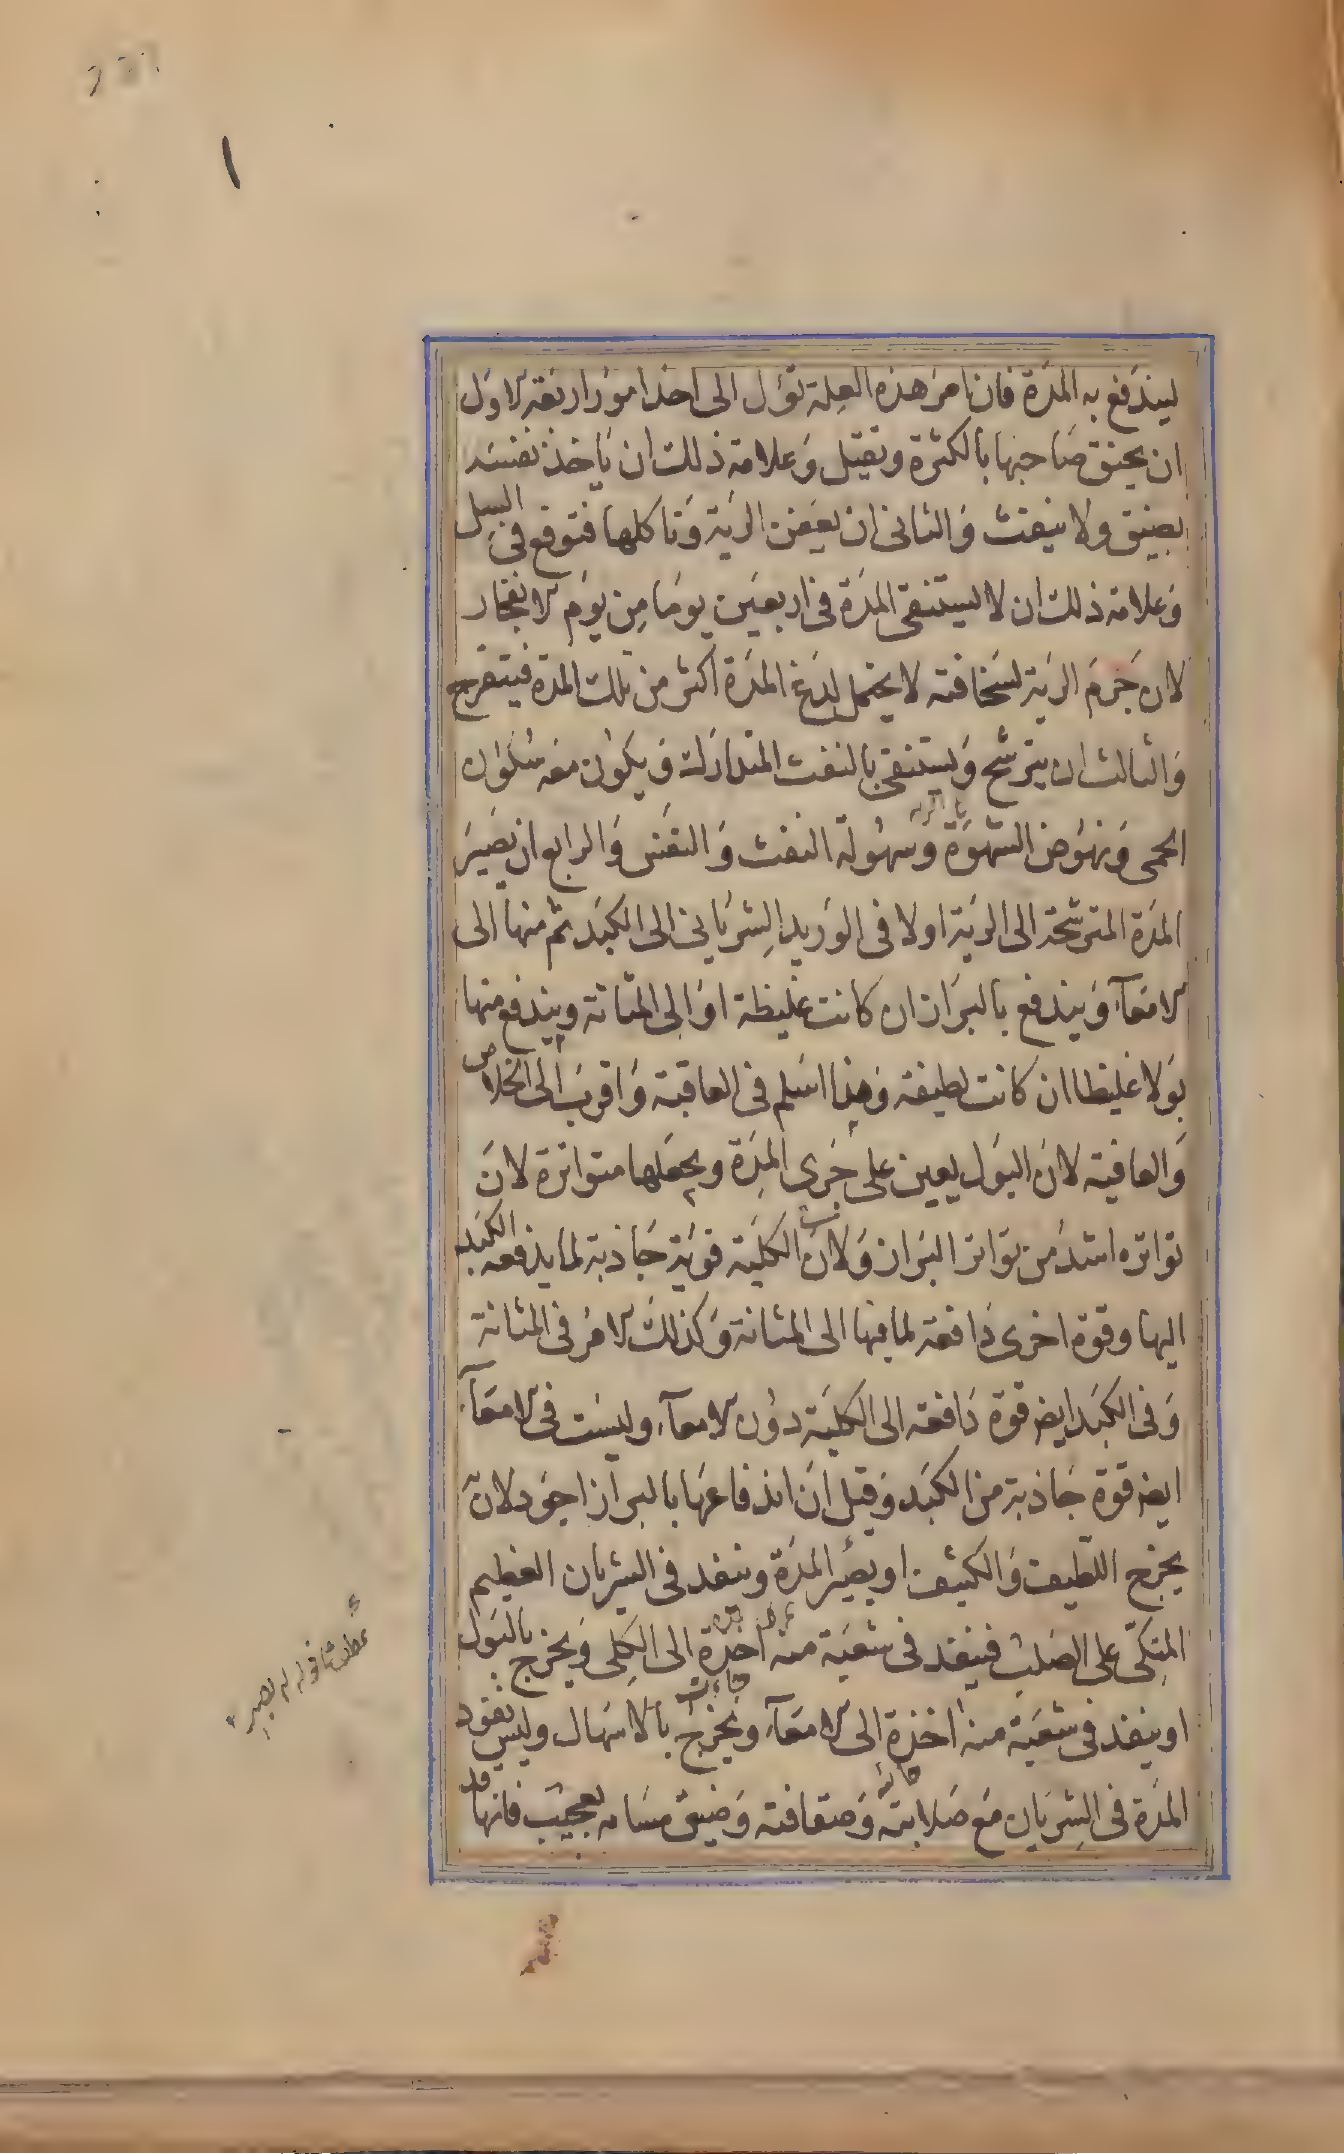 ليندفع به المدة فان امر هذه العلة تؤل الى احد امور اربعة الاول
ان يخنق صاحبها بالكثرة وتقتل وعلامة ذلك ان ياخذ نفسه
بضيق ولا ينفث والثانى ان يعفن الرية وتاكلها فتوقع فى السل
وعلامة ذلك ان لا يستنقى المدة فى اربعين يوما من يوم الانفجار
لان جرم الرية لسخافته لا يحتمل لدغ المدة اكثر من تلك المدة فيتقرح
والثالث ان يترشح ويستنقى بالنفث المتدارك ويكون معه سكون
الحمى ونهوض الشهوة وسهولة النفث والنفس والرابع ان يصير
المدة المترشحة الى الرية اولا فى الوريد الشريانى الى الكبد ثم منها الى
الامعآء ويندفع بالبراز ان كانت غليظة او الى المثانة ويندفع منها
بولا غليظا ان كانت لطيفة وهذا اسلم فى العاقبة واقرب الى الخلاص
والعافية لان البول يعين على جرى المدة ويجعلها متواترة لان
تواتره اشد من تواتر البراز ولان الكلية قوية جاذبة لما يدفعه الكبد
اليها وقوة اخرى دافعة لما فيها الى المثانة وكذلك الامر فى المثانة
وفى الكبد ايضه قوة دافعة الى الكلية دون الامعآء وليست فى الامعآء
ايضه قوة جاذبة من الكبد وقيل ان اندفاعها بالبراز اجود لانه
يخرج اللطيف والكثيف او يصير المدة وينفد فى الشريان العظيم
المتكى على الصلب فينفد فى شعبة منه اخذة الى الكلى ويخرج بالبول
او ينفد فى شعبة منه اخذة الى الامعآء ويخرج بالاسهال وليس نفود
المدة فى الشريان مع صلابته وصفاقته وضيق مسامه بعجيب فانها قد
عطف على قوله ان يصير